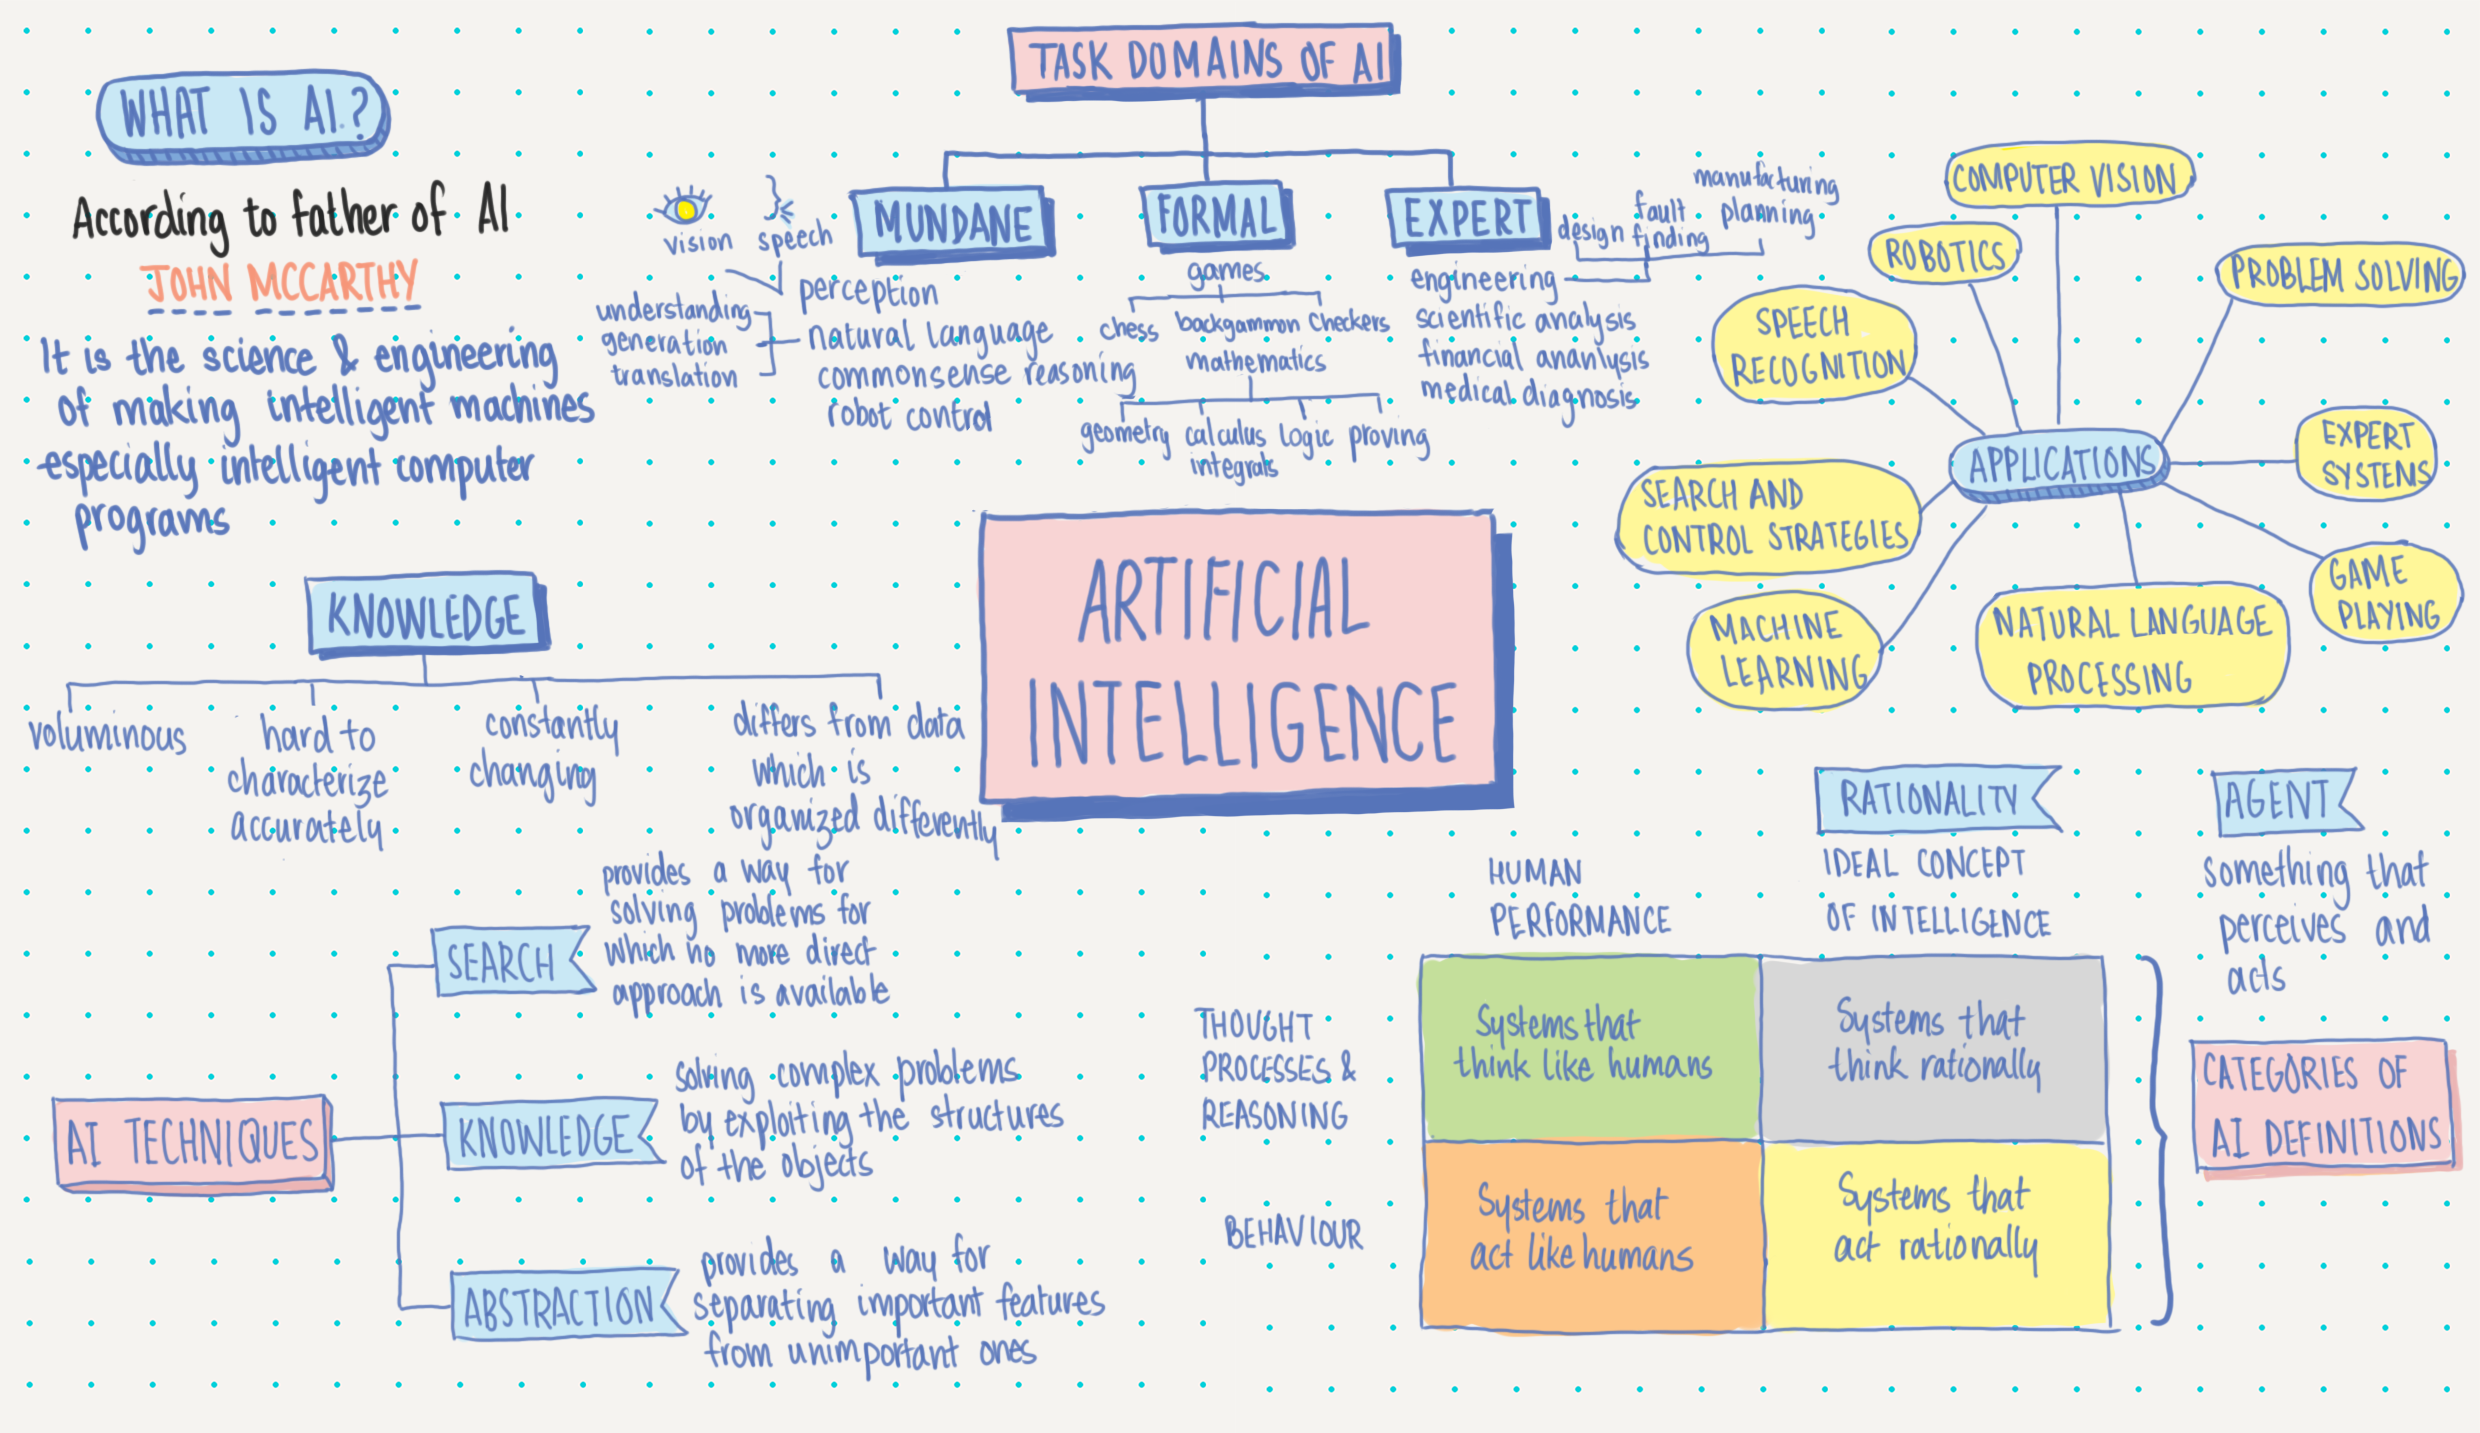 WHAT IS AI?
According to father of AI
JOHN MCCARTHY
It is the science & engineering
of making intelligent machines
especially intelligent computer
programs
TASK DOMAINS OF AI
MUNDANE
vision speech
perception
understanding
generation
translation
natural language
commonsense reasoning
robot control
FORMAL
games
chess backgammon checkers
mathematics
geometry calculus logic proving
integrals
EXPERT
design
fault
finding
manufacturing
planning
engineering
scientific analysis
financial ananlysis
medical diagnosis
APPLICATIONS
COMPUTER VISION
ROBOTICS
PROBLEM SOLVING
SPEECH
RECOGNITION
EXPERT
SYSTEMS
SEARCH AND
CONTROL STRATEGIES
GAME
PLAYING
MACHINE
LEARNING
NATURAL LANGUAGE
PROCESSING
KNOWLEDGE
voluminous
hard to
characterize
accurately
constantly
changing
differs from data
which is
organized differently
ARTIFICIAL
INTELLIGENCE
AI TECHNIQUES
SEARCH
provides a way for
solving problems for
which no more direct
approach is available
KNOWLEDGE
solving complex problems
by exploiting the structures
of the objects
ABSTRACTION
provides a way for
separating important features
from unimportant ones
RATIONALITY
IDEAL CONCEPT
OF INTELLIGENCE
HUMAN
PERFORMANCE
AGENT
something that
perceives and
acts
THOUGHT
PROCESSES &
REASONING
Systems that
think like humans
Systems that
think rationally
BEHAVIOUR
Systems that
act like humans
Systems that
act rationally
CATEGORIES OF
AI DEFINITIONS